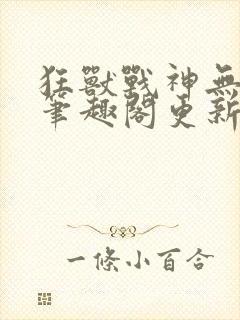 狂獸戰神無
筆趣閣更新
一條小百合